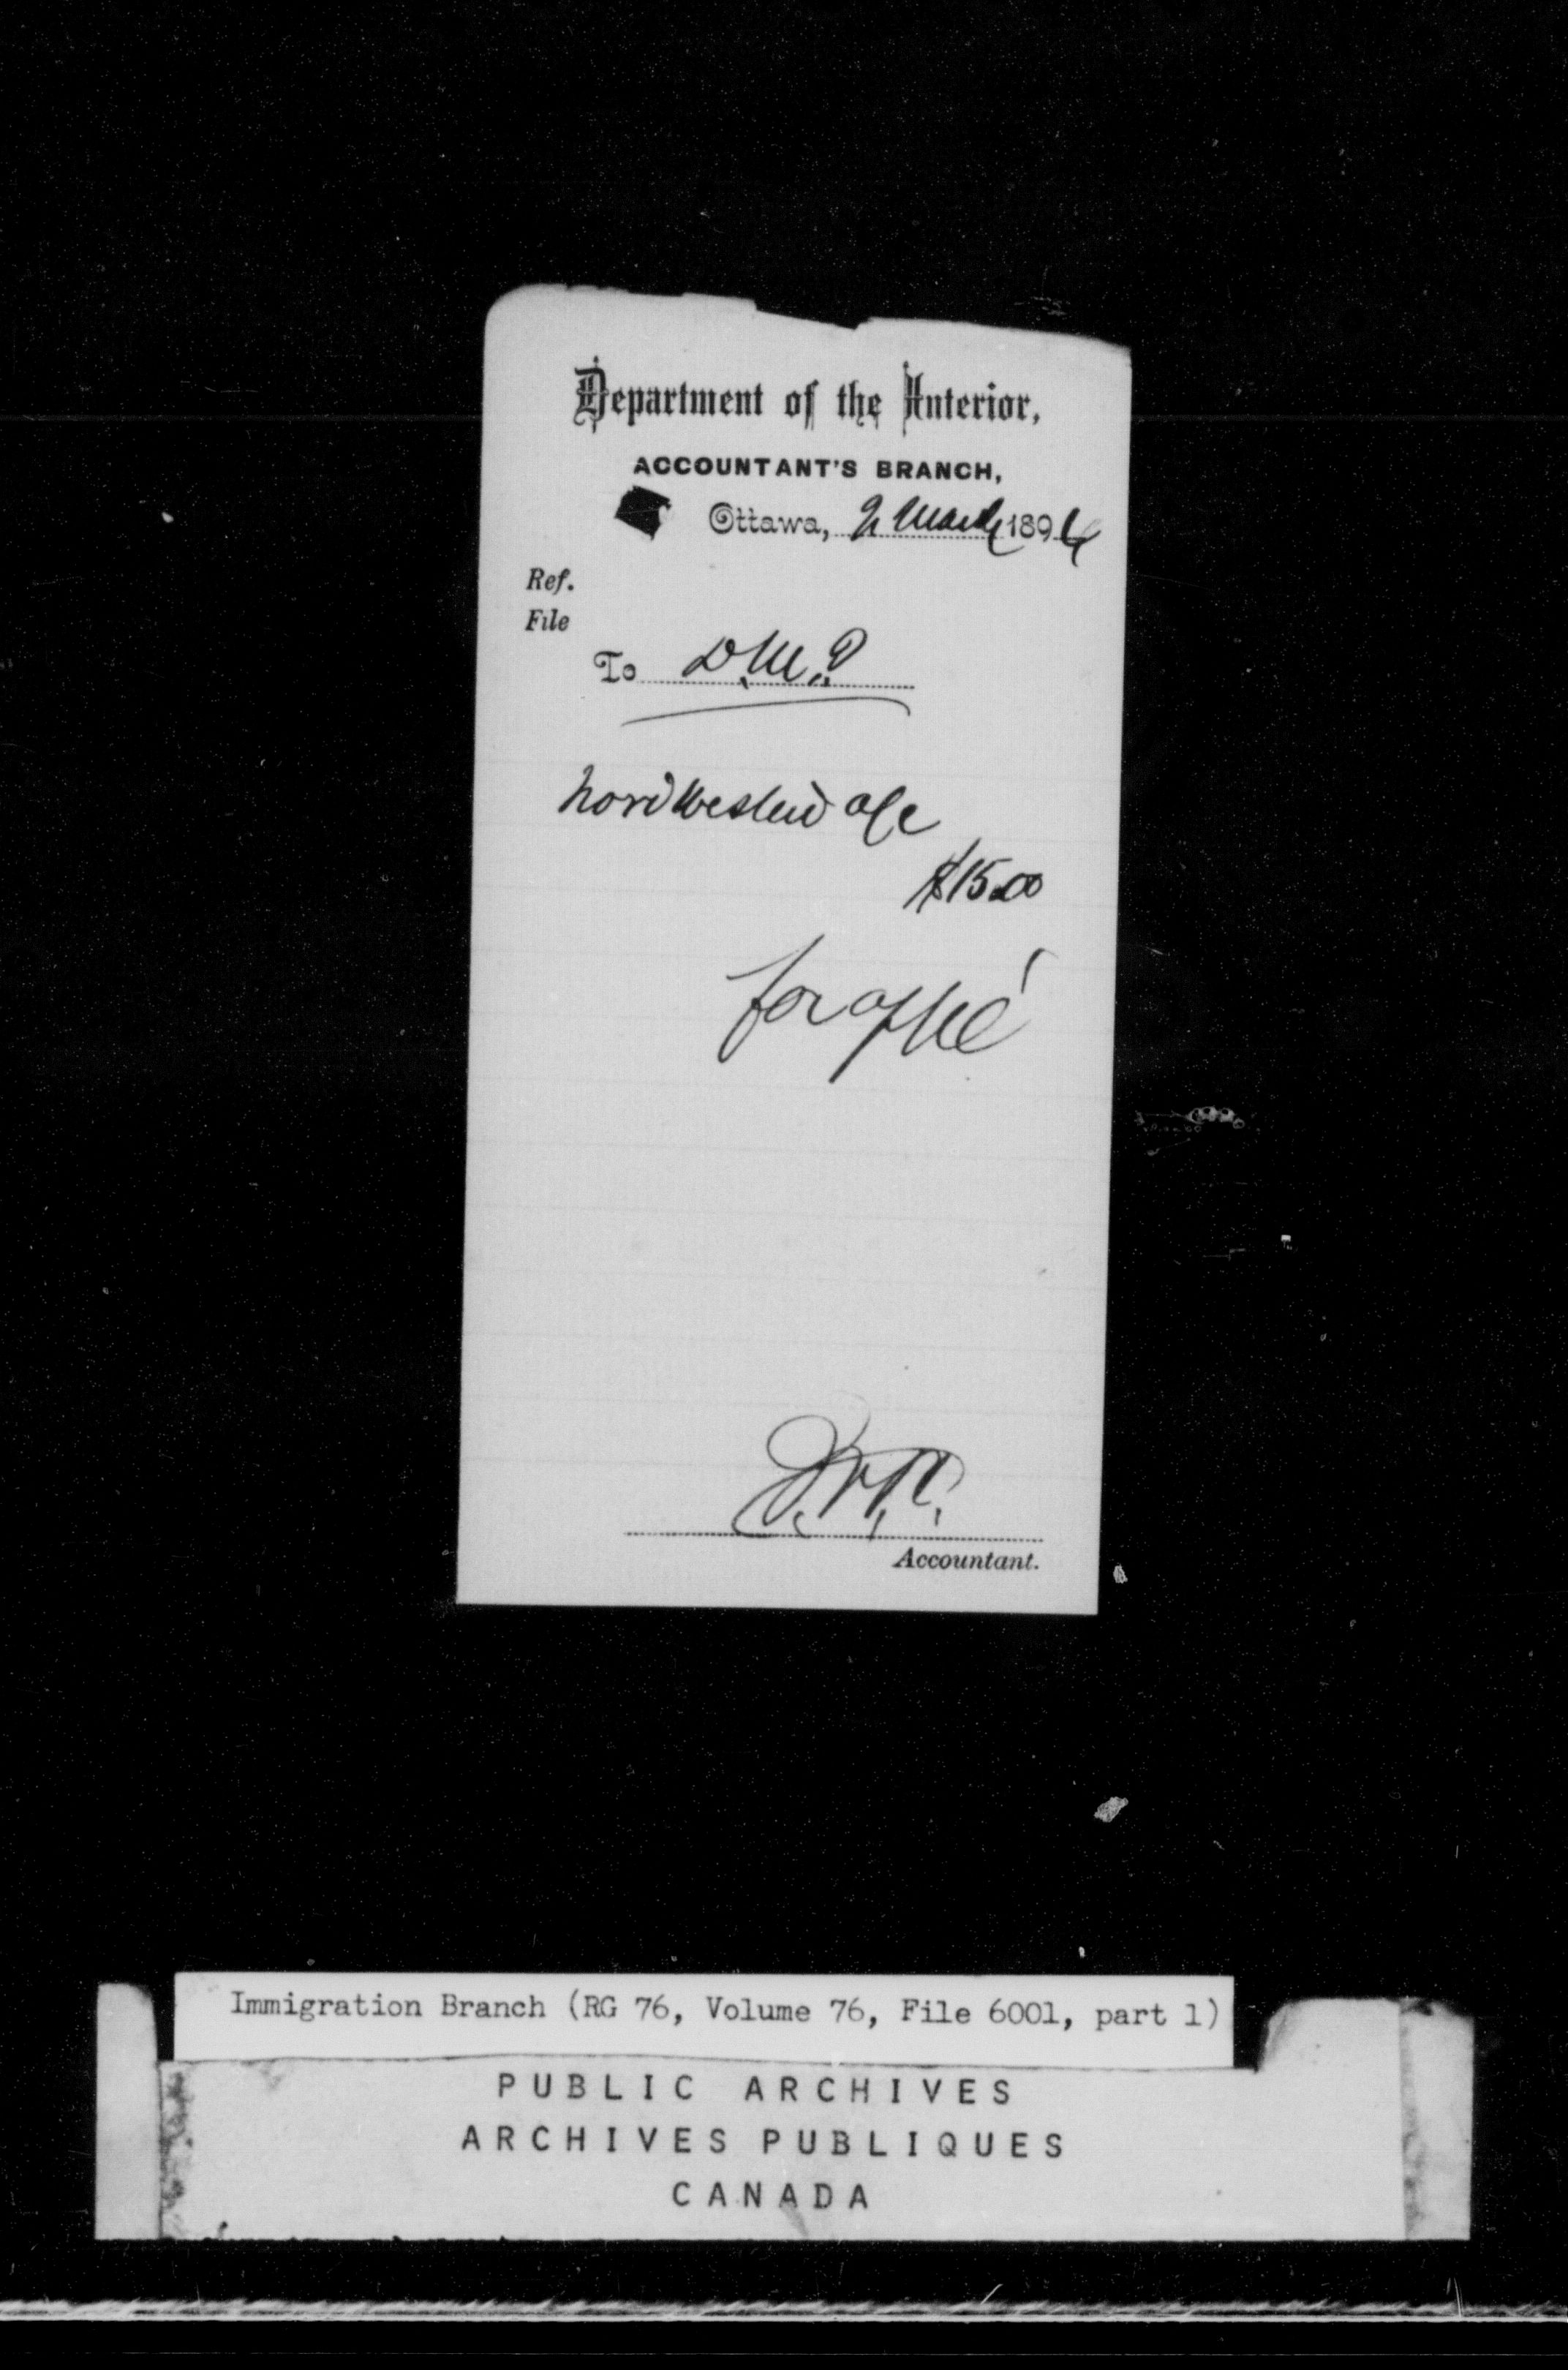 Department of the Interior,
ACCOUNTANT'S BRANCH,
Ottawa, 2 March 1894
Ref.
File
To D.M.I.
a/c
$15.00
for app'l
Accountant.
Immigration Branch (RG 76, Volume 76, File 6001, part 1)
PUBLIC ARCHIVES
ARCHIVES PUBLIQUES
CANADA